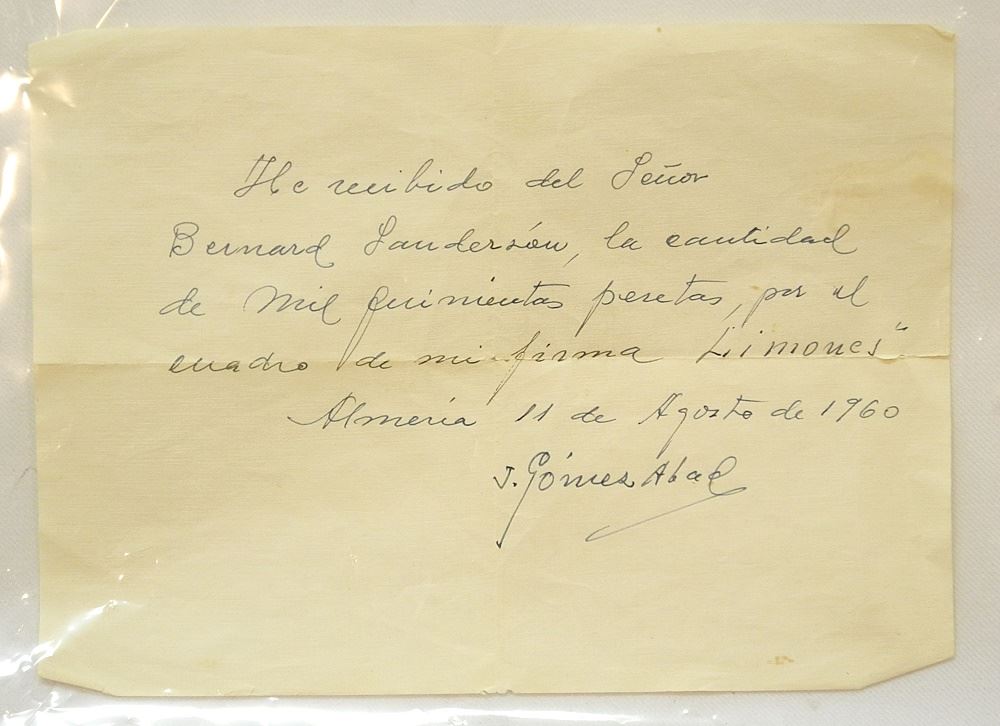 He recibido del Señor
Bernard Sandersón, la cantidad
de Mil quinientas pesetas, por el
cuadro de mi firma Limones"
Almería 11 de Agosto de 1960
J. Gómez Abad